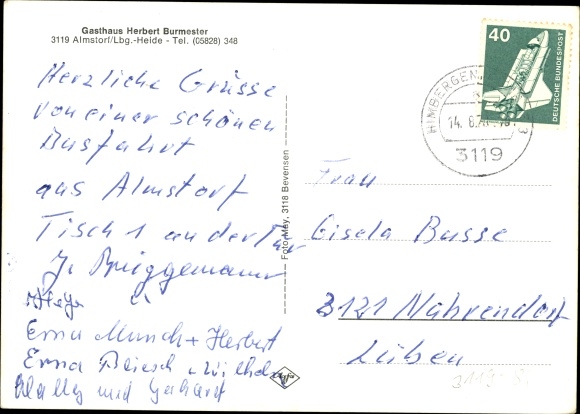 Gasthaus Herbert Burmester
3119 Almstorf/Lbg.-Heide - Tel. (05828) 348
Herzliche Grüsse
von einer schönen
Busfahrt
aus Almstorf
Tisch 1 an der Tür
Brüggemann
Erna Munch + Herbert
Erna
Wally und Gerhard
Foto-May, 3118 Bevensen
Agfa
40
DEUTSCHE BUNDESPOST
HIMBERGEN
14. 8.
3119
Frau
Gisela Busse
3121 Nahrendorf
Lüben